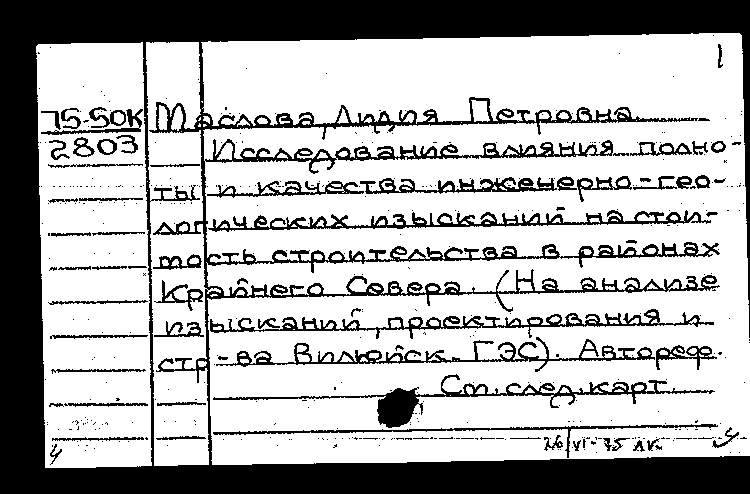 1
75-50К Маслова, Лидия Петровна.
2803 Исследование влияния полно-
ты и качества инженерно-гео-
логических изысканий на стои-
мость строительства в районах
Крайнего Севера. (На анализе
изысканий, проектирования и
стр-ва Вилюйск. ГЭС). Автореф.
См. след. карт.